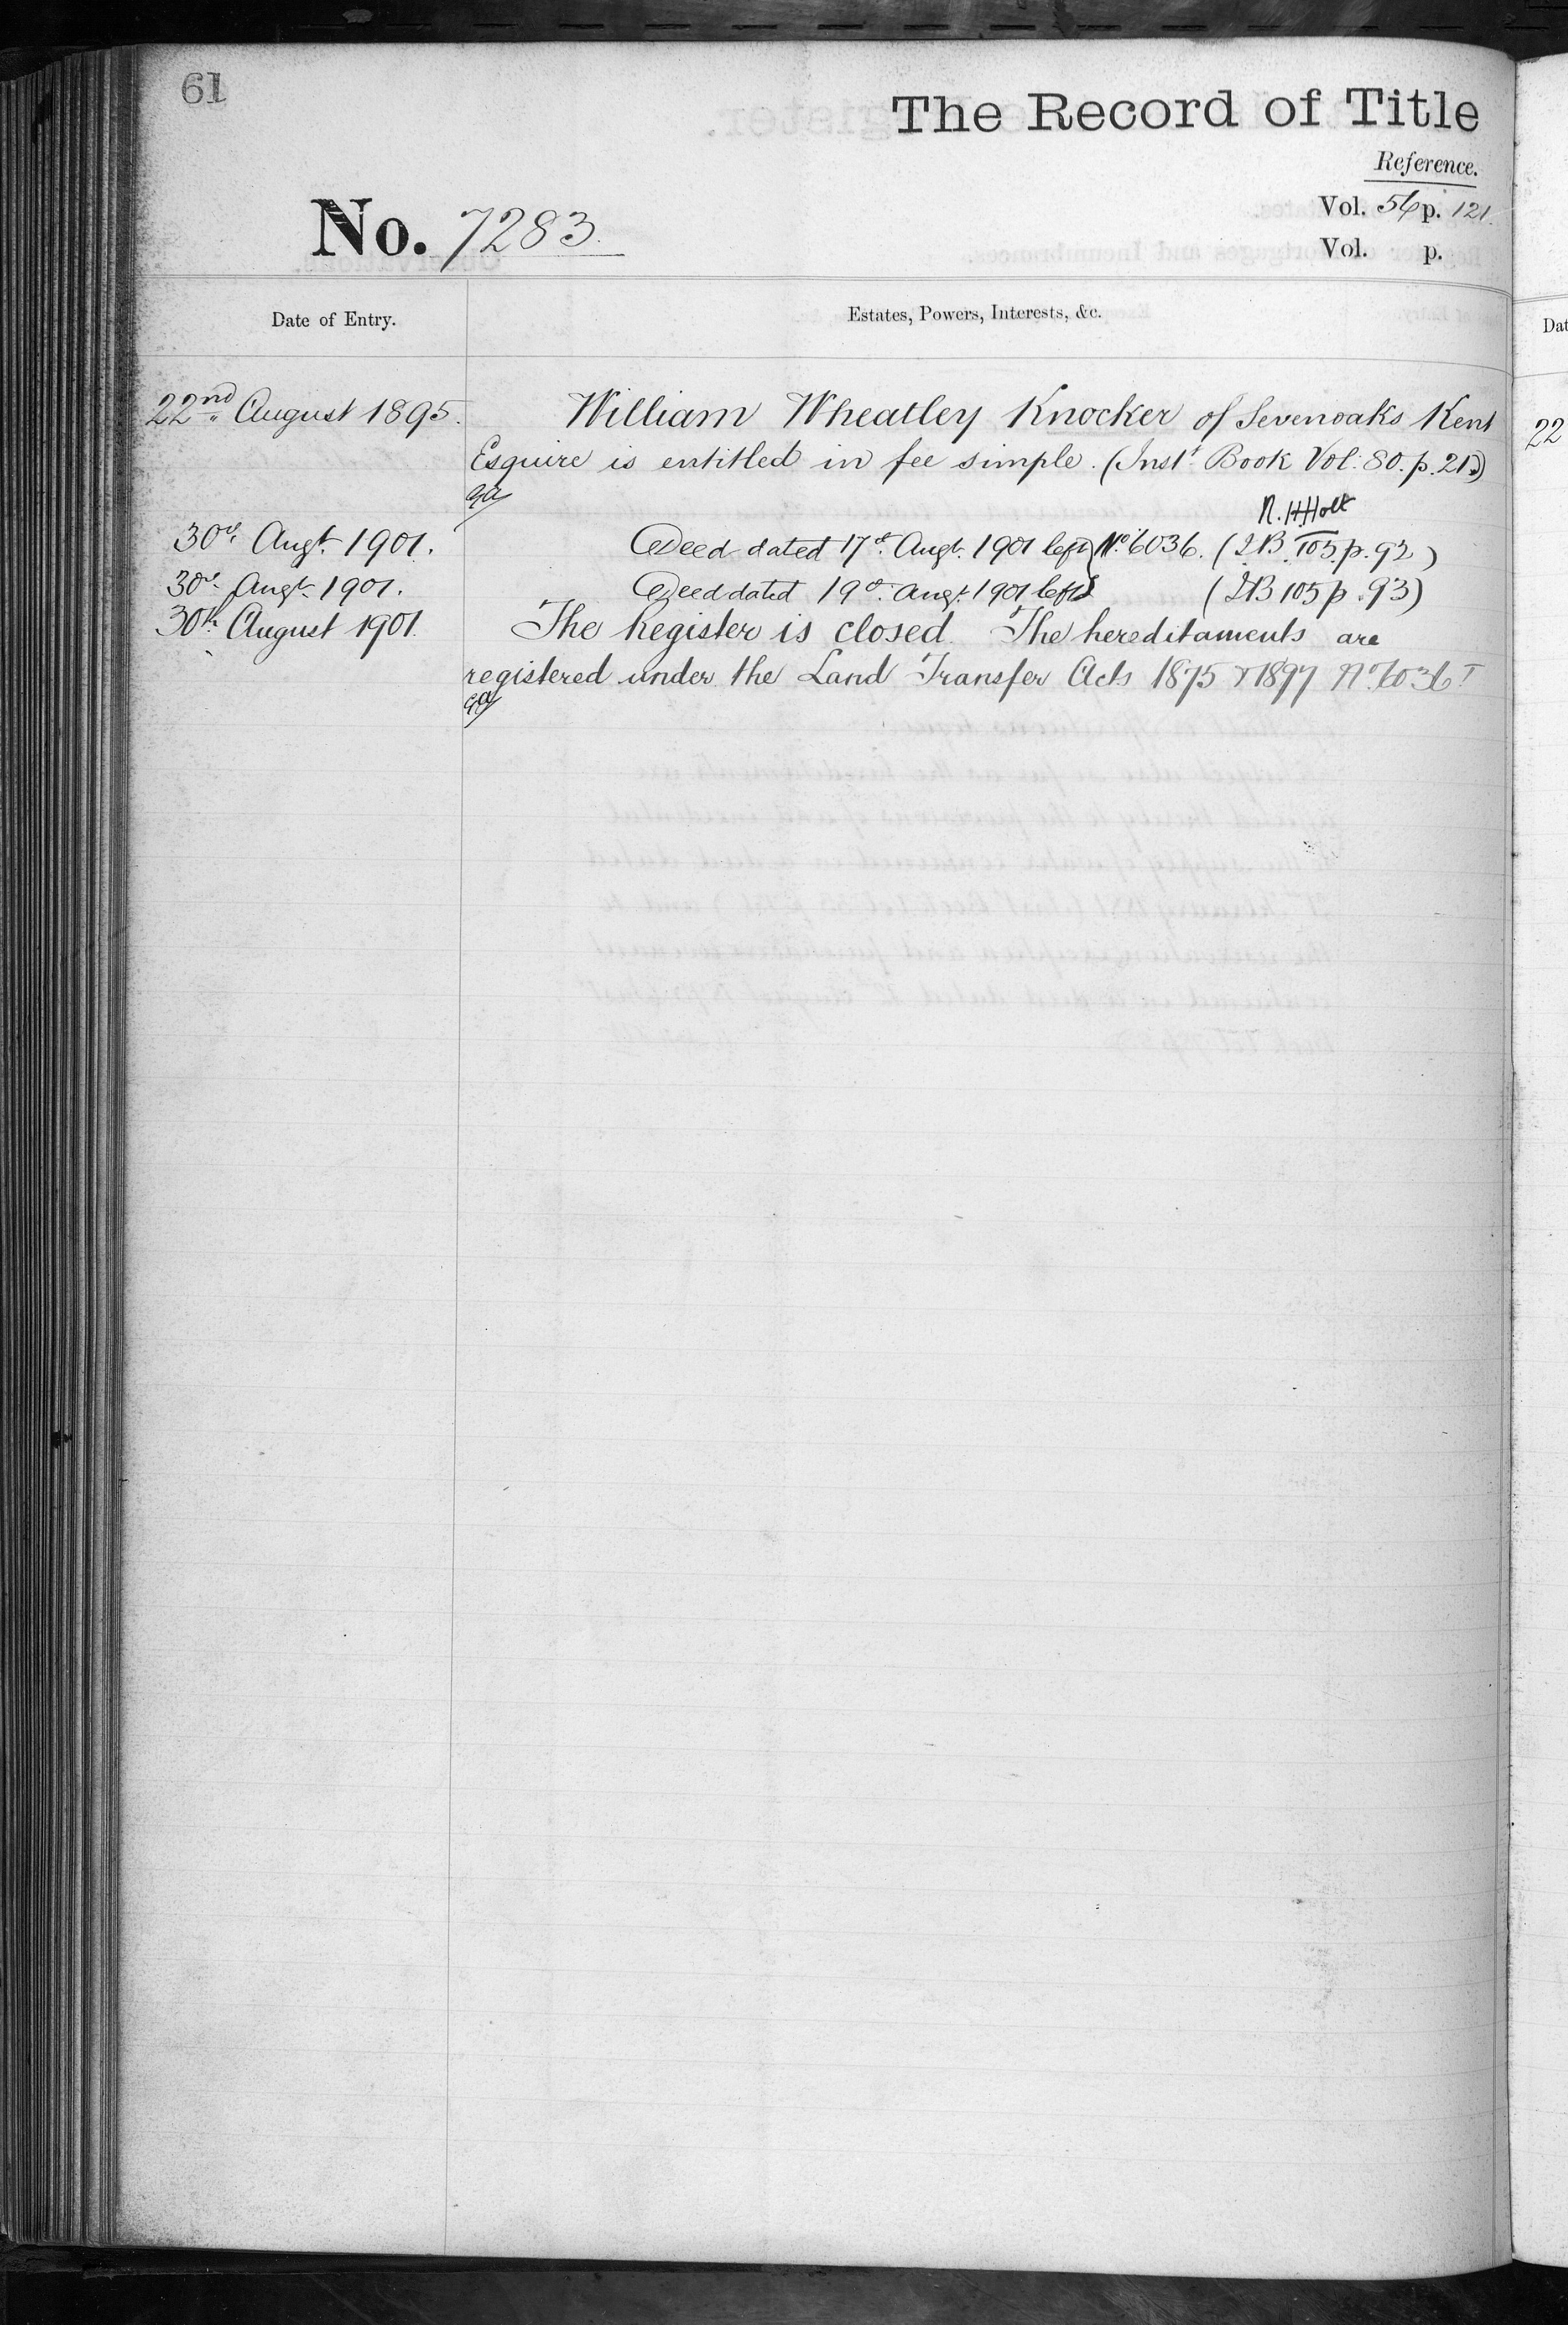 61
The Record of Title
Reference.
Vol. 56 p. 121.
No. 7283.
Vol. p.
Date of Entry. Estates, Powers, Interests, &c.
22nd August 1895. William Wheatley Knocker of Sevenoaks Kent
Esquire is entitled in fee simple. (Inst. Book Vol: 80. p. 21)
N. H. Holt
30th Augt. 1901. Deed dated 17th Augt. 1901 left No. 6036. (I.B. 105. p. 92)
30th Augt. 1901. Deed dated 19th Augt. 1901 left (I.B 105 p. 93)
30th August 1901. The Register is closed. The hereditaments are
registered under the Land Transfer Acts 1875 & 1897 No. 6036
Dat
22